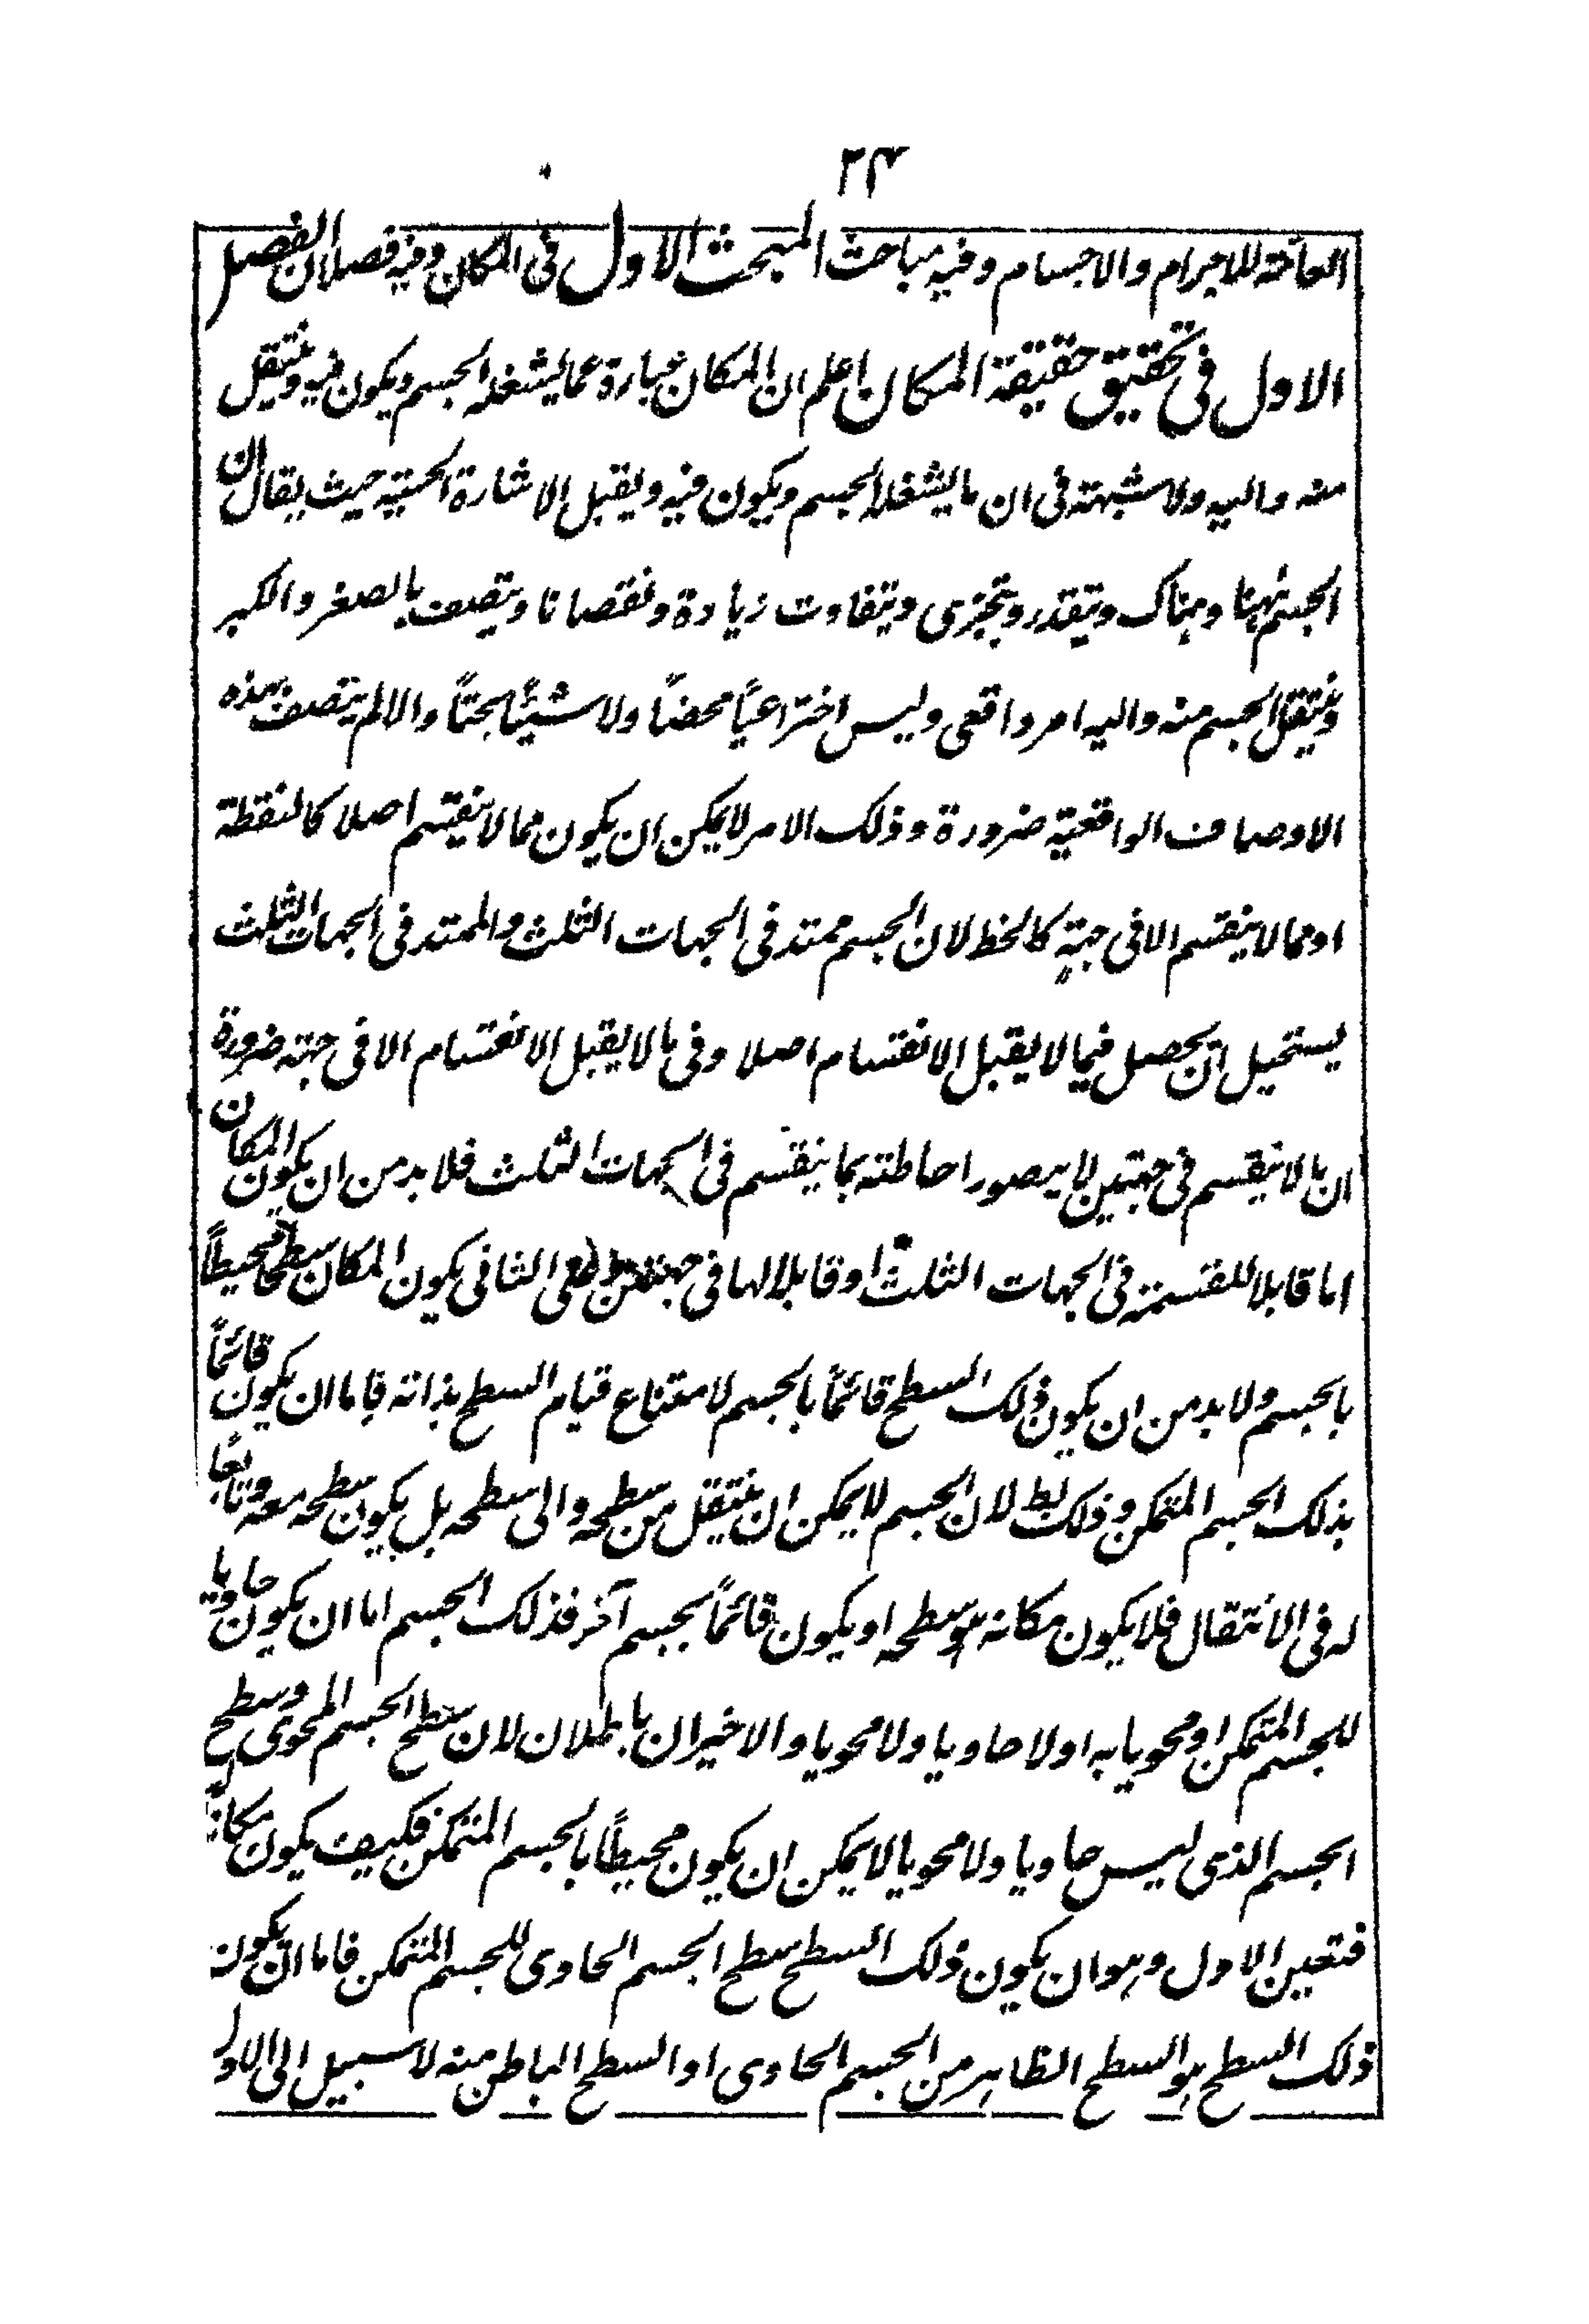 ٢٤
العامة للاجرام والاجسام وفيه مباحث المبحث الاول فى المكان وفيه فصلان الفصل
الاول فى تحقيق حقيقة المكان اعلم ان المكان عبارة عما يشغله الجسم ويكون فيه وينتقل
منه واليه ولا شبهة فى ان ما يشغله الجسم ويكون فيه ويقبل الاشارة الحسية حيث يقال ان
الجسم ههنا وهناك ويتقدر ويتجزى ويتفاوت زيادة ونقصانا ويتصف بالصغر والكبر
وينتقل الجسم منه واليه امر واقعى وليس اختراعيًا محضًا ولا شيئًا بحتًا والا لم يتصف بهذه
الاوصاف الواقعية ضرورة وذلك الامر لا يمكن ان يكون مما لا ينقسم اصلا كالنقطة
او مما لا ينقسم الا فى جهة كالخط لان الجسم ممتد فى الجهات الثلث والممتد فى الجهات الثلث
يستحيل ان يحصل فيما لا يقبل الانقسام اصلا وفى ما لا يقبل الانقسام الا فى جهة ضرورة
ان ما لا ينقسم فى جهتين لا يتصور احاطته بما ينقسم فى الجهات الثلث فلا بد من ان يكون المكان
اما قابلا للقسمة فى الجهات الثلث او قابلا لها فى جهتين وعلى الثانى يكون المكان سطحا محيطًا
بالجسم ولا بد من ان يكون ذلك السطح قائمًا بالجسم لامتناع قيام السطح بذاته فاما ان يكون قائمًا
بذلك الجسم المتمكن وذلك بط لان الجسم لا يمكن ان ينتقل من سطحه والى سطحه بل يكون سطحه معه وتابعًا
له فى الانتقال فلا يكون مكانه هو سطحه او يكون قائمًا بجسم آخر فذلك الجسم اما ان يكون حاويا
للجسم المتمكن او محويا به او لا حاويا ولا محويا والاخيران باطلان لان سطح الجسم المحوى وسطح
الجسم الذى ليس حاويا ولا محويا لا يمكن ان يكون محيطًا بالجسم المتمكن فكيف يكون مكانًا
فتعين الاول وهو ان يكون ذلك السطح سطح الجسم الحاوى للجسم المتمكن فاما ان يكون
ذلك السطح هو السطح الظاهر من الجسم الحاوى او السطح الباطن منه لا سبيل الى الاول